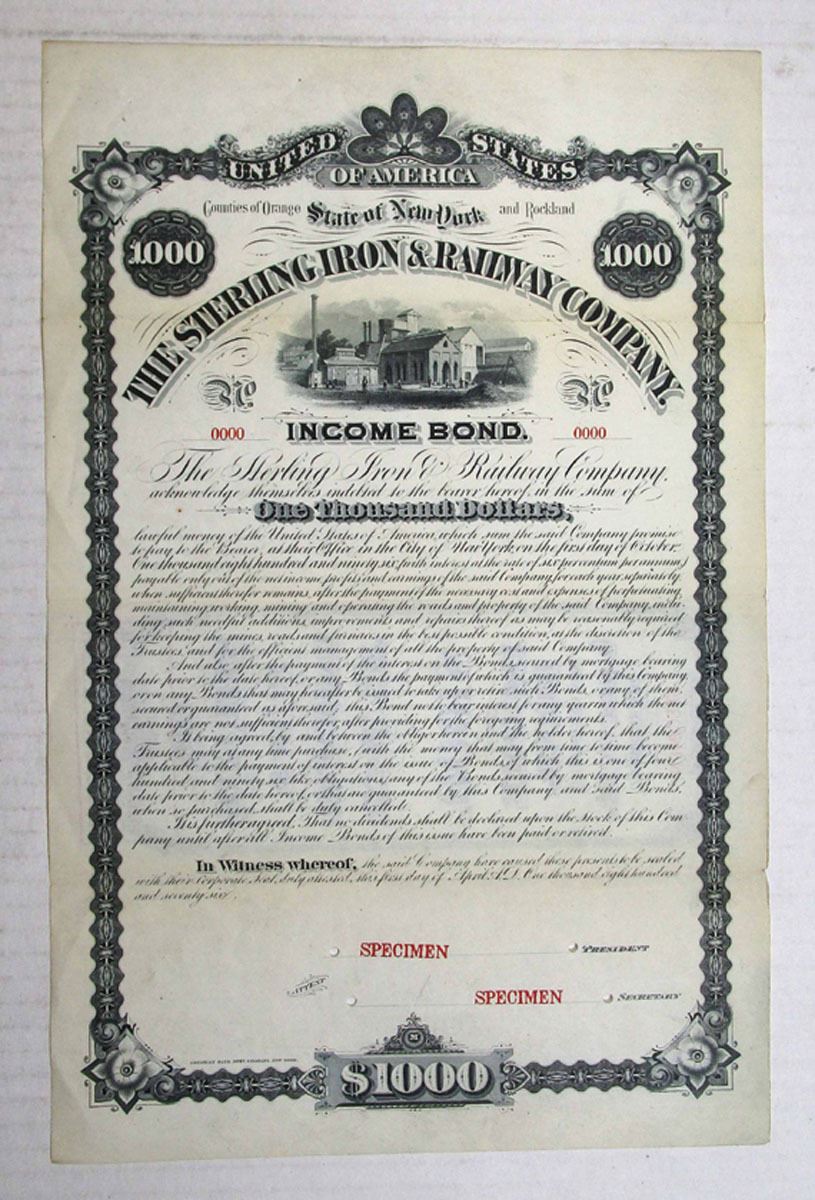 UNITED STATES
OF AMERICA
Counties of Orange State of New York and Rockland
1.000 1.000
THE STERLING IRON & RAILWAY COMPANY.
No No
0000 INCOME BOND. 0000
The Sterling Iron & Railway Company,
acknowledge themselves indebted to the bearer hereof, in the sum of
One Thousand Dollars,
lawful money of the United States of America, which sum the said Company promise
to pay to the Bearer, at their Office in the City of New York, on the first day of October,
One thousand eight hundred and ninety six, (with interest at the rate of six per centum per annum,)
payable only out of the net income, profits and earnings of the said Company, for each year, separately,
when sufficient therefor remains, after the payment of the necessary cost and expenses of perpetuating,
maintaining, working, mining and operating the roads and property of the said Company, inclu-
ding such needful additions, improvements and repairs thereof as may be reasonably required
for keeping the mines, roads and furnaces in the best possible condition, at the discretion of the
Trustees, and for the efficient management of all the property of said Company.
And also, after the payment of the interest on the Bonds, secured by mortgage bearing
date prior to the date hereof, or any Bonds the payment of which is guaranteed by this Company,
or on any Bonds that may hereafter be issued to take up or retire such Bonds, or any of them,
secured or guaranteed as aforesaid, this Bond not to bear interest for any year in which the net
earnings are not sufficient therefor, after providing for the foregoing requirements.
It being agreed, by and between the obligor herein and the holder hereof, that the
Trustees may at any time purchase, (with the money that may from time to time become
applicable to the payment of interest on the issue of Bonds, of which this is one of four
hundred and ninety six like obligations,) any of the Bonds secured by mortgage bearing
date prior to the date hereof, or that are guaranteed by this Company and said Bonds,
when so purchased, shall be duly cancelled.
It is further agreed, That no dividends shall be declared upon the Stock of this Com-
pany until after all Income Bonds of this issue have been paid or retired.
In Witness whereof, the said Company have caused these presents to be sealed
with their Corporate Seal, duly attested, this first day of April, A.D. One thousand eight hundred
and seventy six.
SPECIMEN PRESIDENT
ATTEST
SPECIMEN SECRETARY
AMERICAN BANK NOTE COMPANY, NEW YORK.
M
$1000